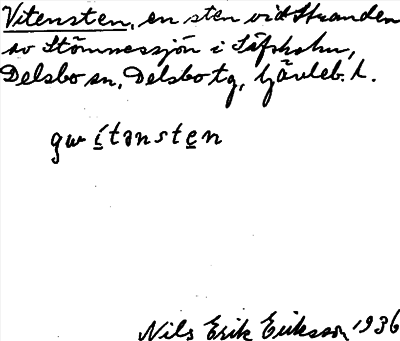 Vitensten, en sten vid Stranden
av Stömnessjön i
Delsbo sn, Delsbo tg, Gävleb. l.
gw ítənsten
Nils Erik Eriksson 1936